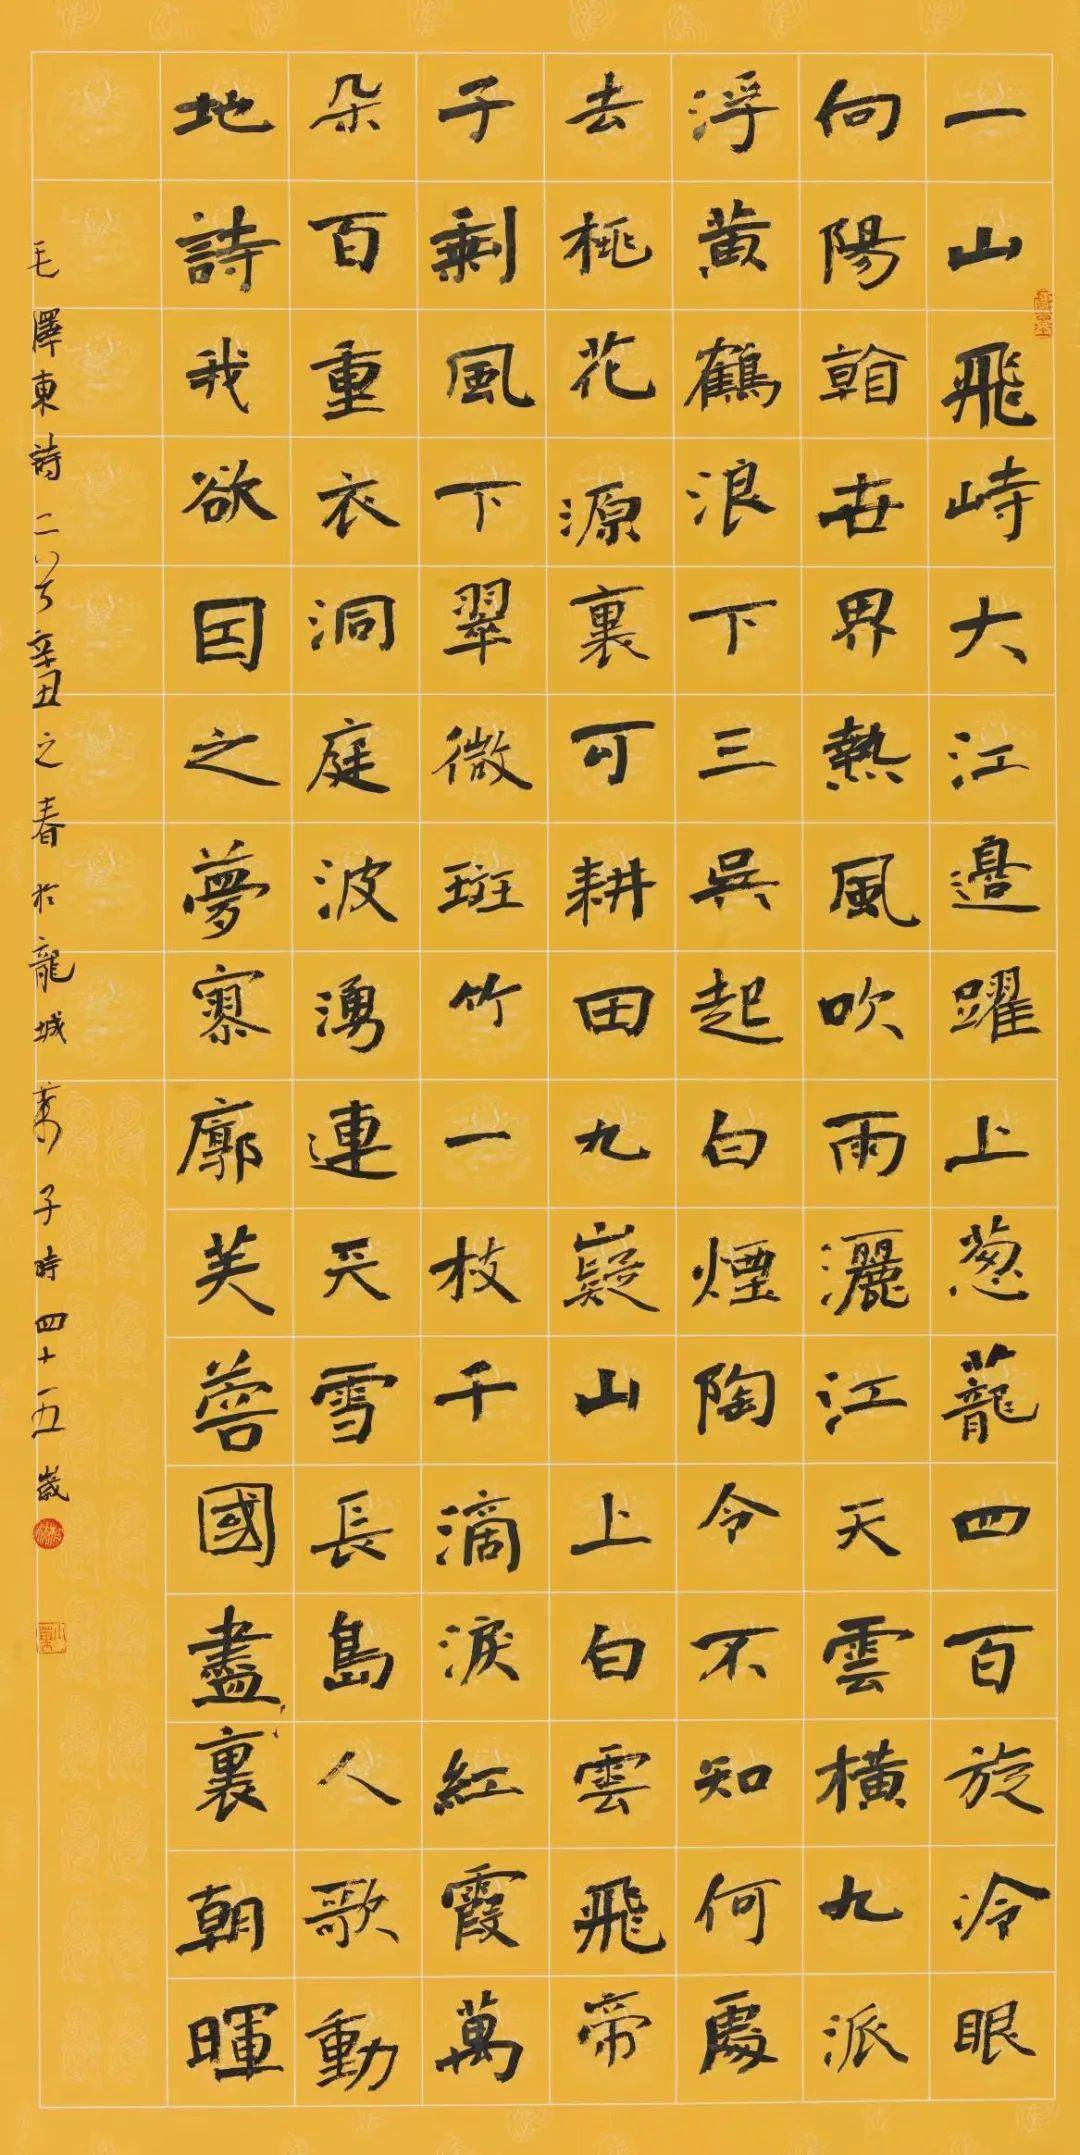 一山飛峙大江邊躍上葱蘢四百旋冷眼
向陽看世界熱風吹雨灑江天雲橫九派
浮黄鶴浪下三吳起白煙陶令不知何處
去桃花源裏可耕田九嶷山上白雲飛帝
子剩風下翠微斑竹一枝千滴淚紅霞萬
朵百重衣洞庭波湧連天雪長島人歌動
地詩我欲因之夢寥廓芙蓉國盡裏朝暉
毛澤東詩二首辛丑之春於龍城子時四十五歲